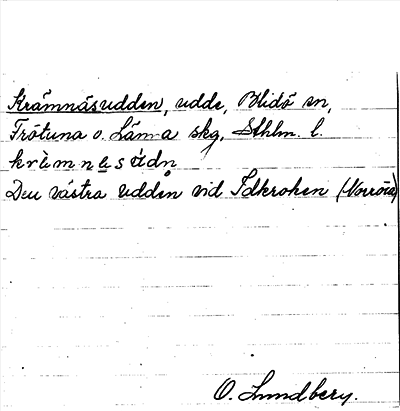 Krämnäsudden, udde, Blidö sn,
Frötuna o. Länna skg, Sthlm. l.
kràmnasùdn
Den västra udden vid Idkroken (Norröra)
O. Lundberg.